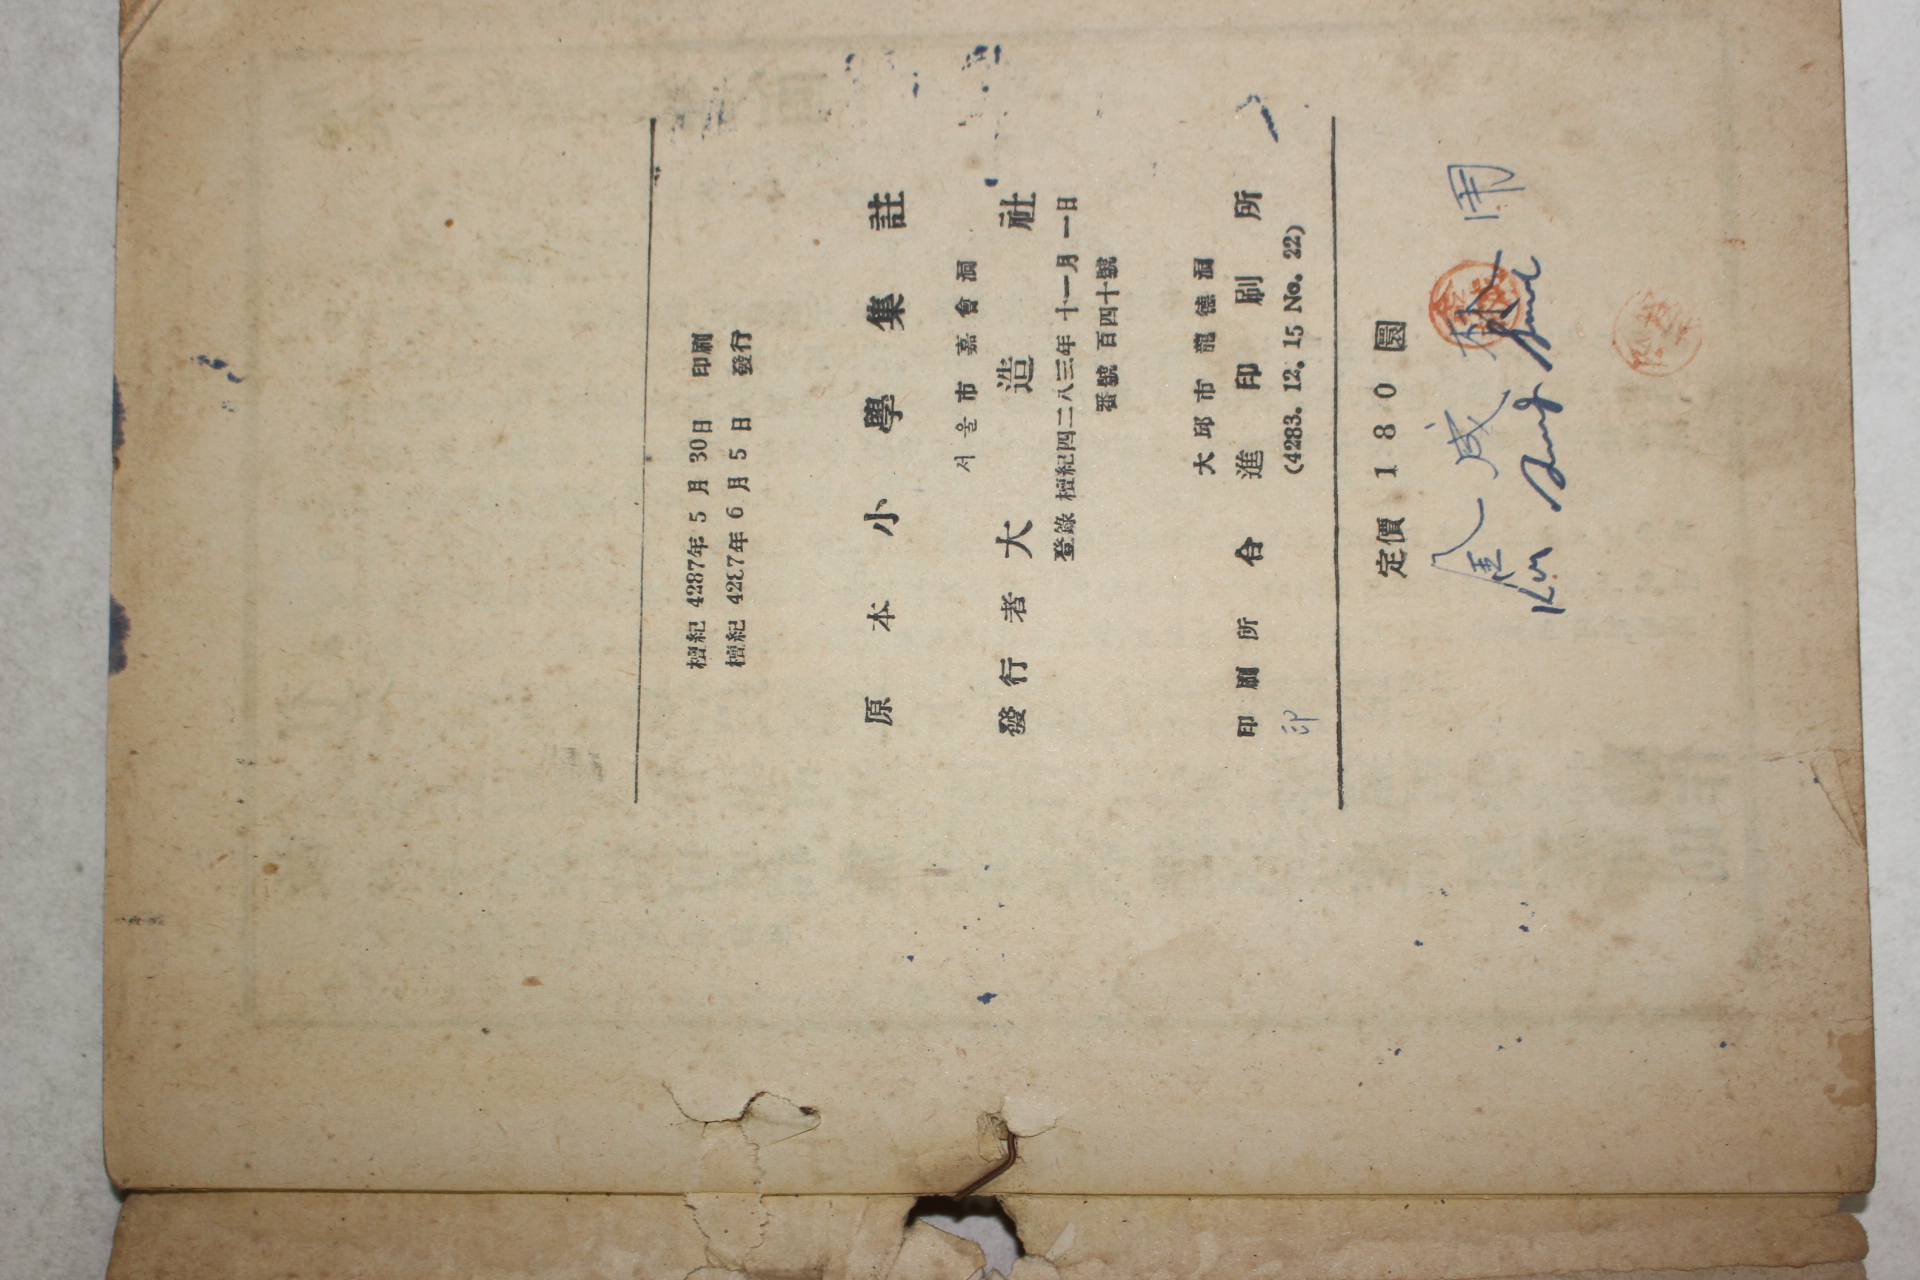 檀紀 4287年 5 月 30日 印刷
檀紀 4287年 6 月 5 日 發行
原本小學集註
서울市嘉會洞
發行者 大造社
登錄 檀紀四二八三年 十一月 一日
番號 百四十號
大邱市龍德洞
印刷所 合進印刷所
印
(4283. 12. 15 No. 22)
定價 180 圜
金成 用
Kim Sung